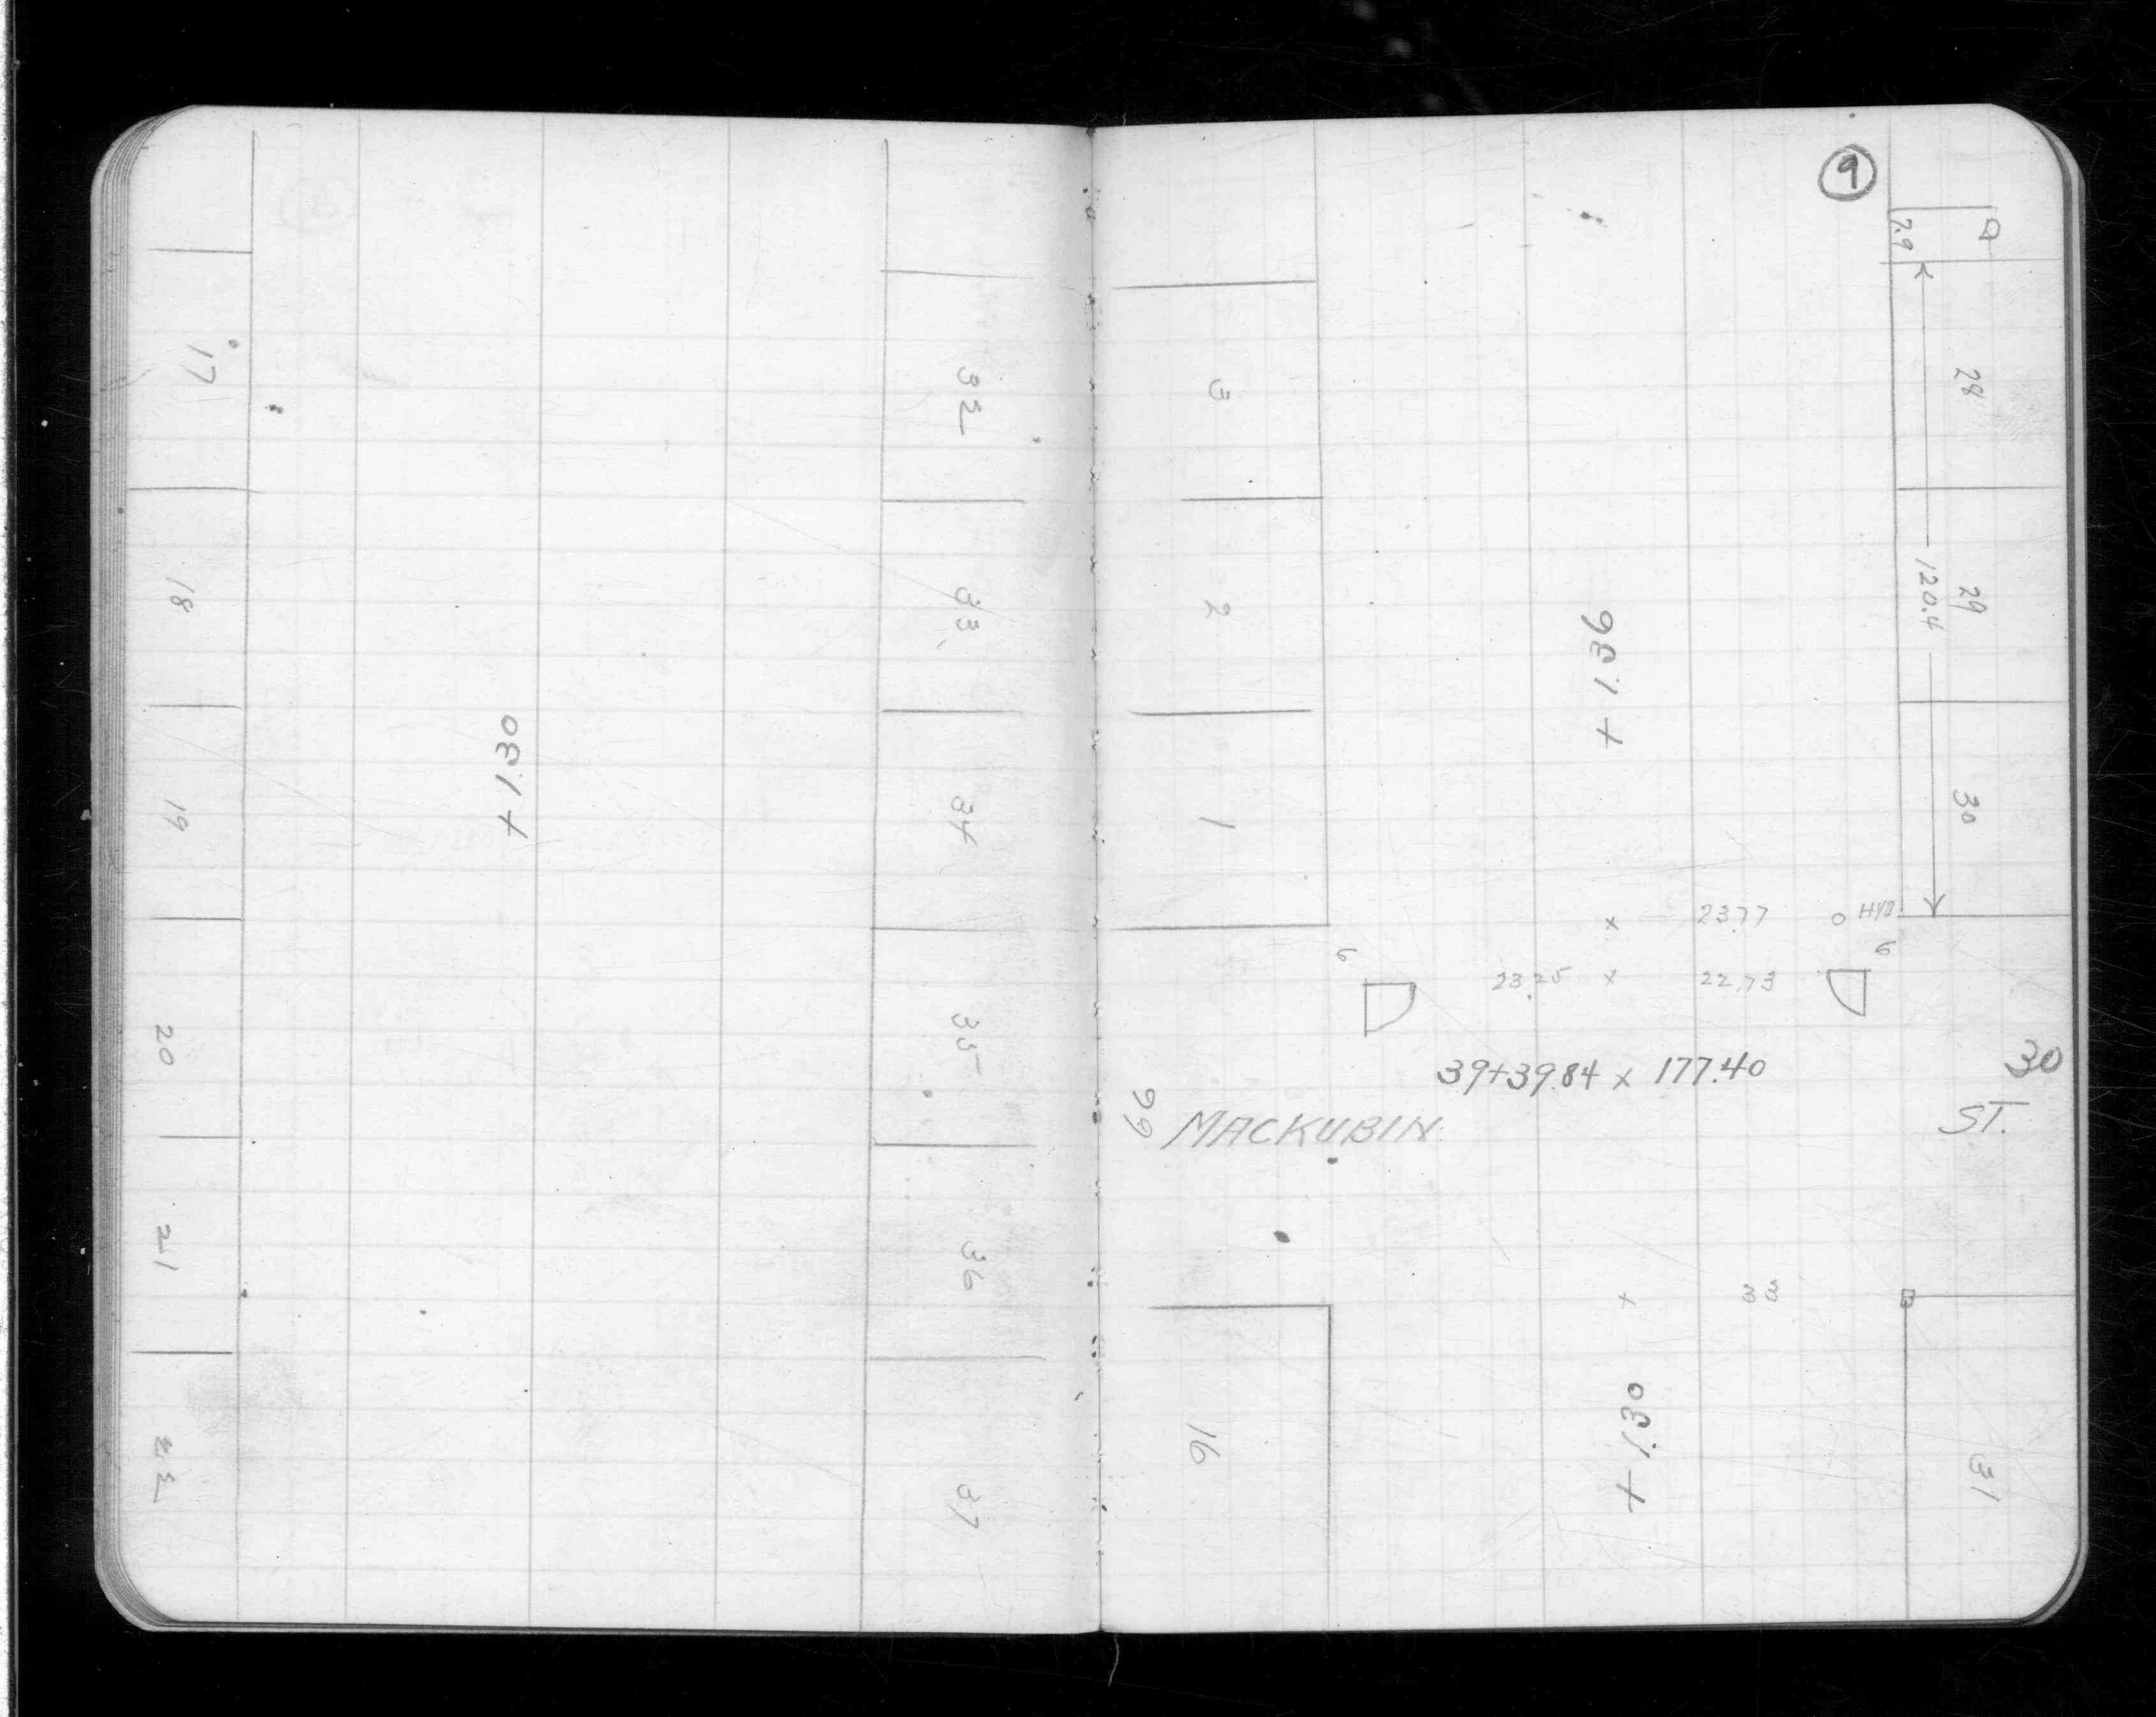 17
18
19
20
21
22
+ 1.30
32
33
34
35
36
37
9
7.9
28
29
120.4
30
3
2
1
+ 1.36
x 23.77 HYD
6 6
23.25 x 22.73
39+39.84 x 177.40
30
66 MACKUBIN ST.
+ 33
16
+ 1.30
31